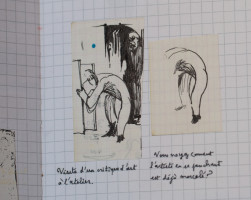 Visite d'un critique d'art
à l'atelier.
Vous voyez comment
l'artiste en se penchant
est déjà morcelé!?